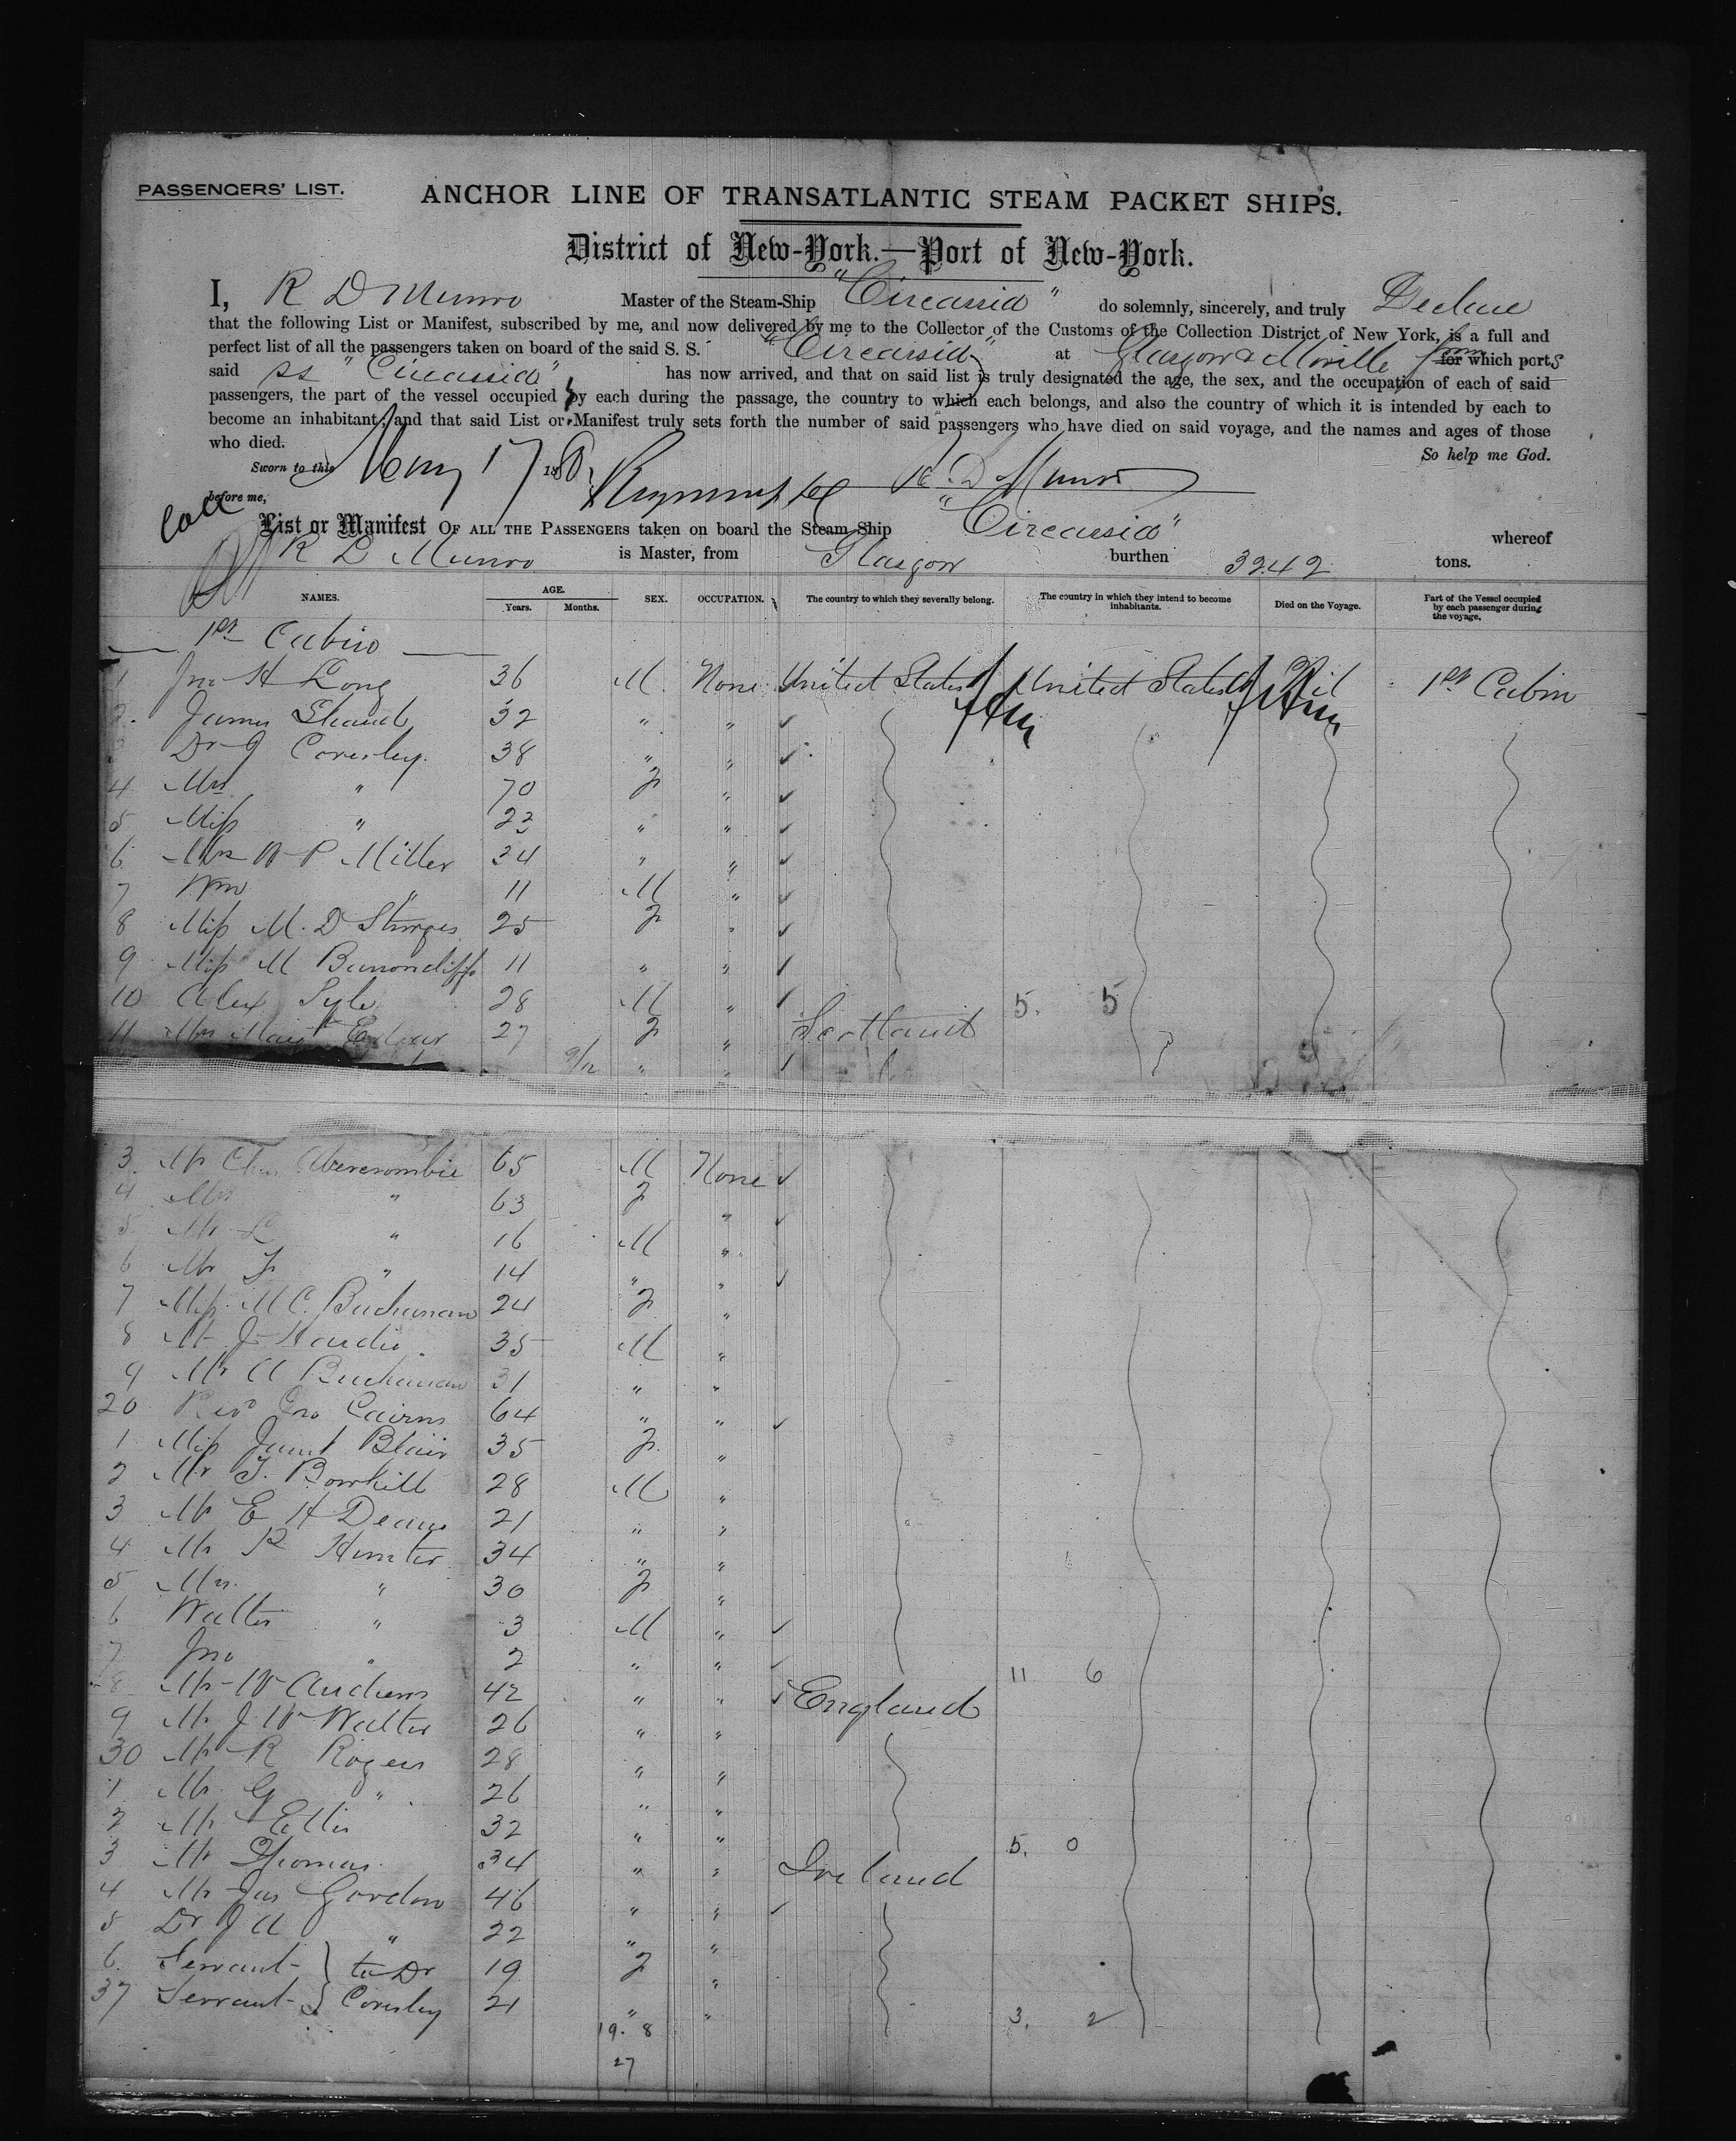 PASSENGERS' LIST.
ANCHOR LINE OF TRANSATLANTIC STEAM PACKET SHIPS.
District of New-York.—Port of New-York.
I, R D Munro Master of the Steam-Ship "Circassia" do solemnly, sincerely, and truly Declare
that the following List or Manifest, subscribed by me, and now delivered by me to the Collector of the Customs of the Collection District of New York, is a full and
perfect list of all the passengers taken on board of the said S. S. "Circassia" at Glasgow & Moville from which ports
said ss "Circassia" has now arrived, and that on said list is truly designated the age, the sex, and the occupation of each of said
passengers, the part of the vessel occupied by each during the passage, the country to which each belongs, and also the country of which it is intended by each to
become an inhabitant; and that said List or Manifest truly sets forth the number of said passengers who have died on said voyage, and the names and ages of those
who died.
So help me God.
Sworn to this May 17 188
before me, R D Munro
List or Manifest OF ALL THE PASSENGERS taken on board the Steam-Ship "Circassia" whereof
R D Munro is Master, from Glasgow burthen 3242 tons.
NAMES. AGE. Years. Months. SEX. OCCUPATION. The country to which they severally belong. The country in which they intend to become inhabitants. Died on the Voyage. Part of the Vessel occupied by each passenger during the voyage.
1st Cabin
1 Jno H Long 36 M. None United States United States Nil 1st Cabin
2. James 32 " "
3 Dr J Coverley. 38 " "
4 Mrs " 70 F "
5 Miss " 22 " "
6 Mrs W P Miller 34 " "
7 Wm " 11 M "
8 Miss M. D Sturges 25 F "
9 Miss M 11 " "
10 Alex 28 M " 5. 5
11 Mrs Margt 27 F " Scotland
9/12 " "
3. Mr Chas Abercrombie 65 M None
4 Mrs " 63 F "
5 Mr L " 16 M "
6 Mr F " 14 " "
7 Miss M C. Buchanan 24 F "
8 Mr J Hardie 35 M "
9 Mr A Buchanan 31 " "
20 Revd Jno Cairns 64 " "
1 Miss Janet Blair 35 F. "
2 Mr T. Bowhill 28 M "
3 Mr E H Deane 21 " "
4 Mr R Hunter 34 " "
5 Mrs. " 30 F "
6 Walter " 3 M "
7 Jno " 2 " " 11 6
8 Mr W Andrews 42 " " England
9 Mr J W Walter 26 " "
30 Mr R Rogers 28 " "
1 Mr G " 26 " "
2 Mr Ellis 32 " " 5. 0
3 Mr Thomas 34 " " Ireland
4 Mr Jas Gordon 46 " "
5 Dr J A " 22 " "
6. Servant to Dr 19 F "
37 Servant Coverley 21 " " 3. 2
19. 8
27